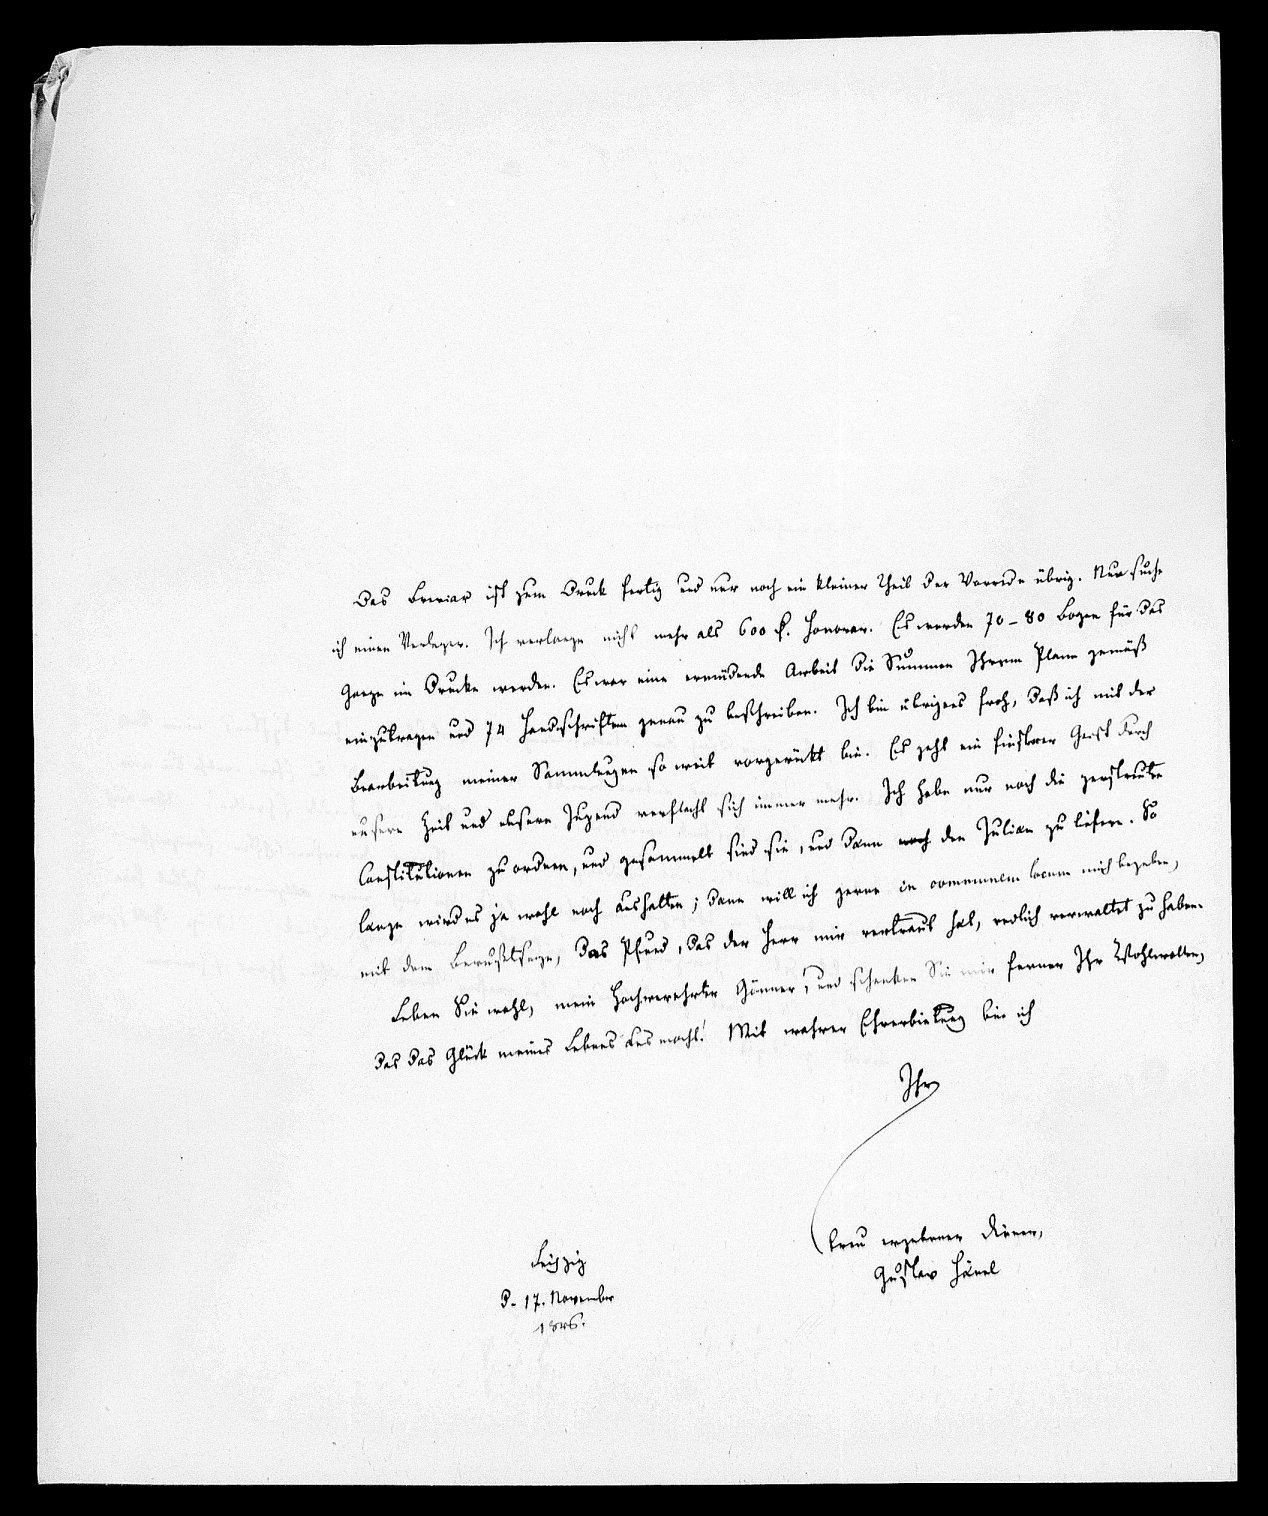 Das Breviar ist zum Druck fertig und nur noch ein kleiner Theil der Vorrede übrig. Nun suche
ich einen Verleger. Ich verlange nicht mehr als 600 f. Honorar. Es werden 70-80 Bogen für das
Ganze im Drucke werden. Es war eine ermüdende Arbeit die Summen Ihrem Plane gemäß
einzutragen und 74 Handschriften genau zu beschreiben. Ich bin übrigens froh, daß ich mit der
Bearbeitung meiner Sammlungen so weit vorgerückt bin. Es geht ein finsterer Geist durch
unsere Zeit und unsere Jugend verflacht sich immer mehr. Ich habe nur noch die zerstreuten
Constitutionen zu ordnen, und gesammelt sind sie, und dann noch den Julian zu liefern. So
lange wird es ja wohl noch aushalten; dann will ich gerne in communem locum mich begeben,
mit dem Bewußtseyn, das Pfund, das der Herr mir vertraut hat, redlich verwaltet zu haben.
Leben Sie wohl, mein hochverehrter Gönner, und schenken Sie mir ferner Ihr Wohlwollen,
das das Glück meines Lebens ausmacht! Mit wahrer Ehrerbietung bin ich
Ihr
treu ergebener Diener,
Gustav Hänel
Leipzig
d. 17. November
1846.